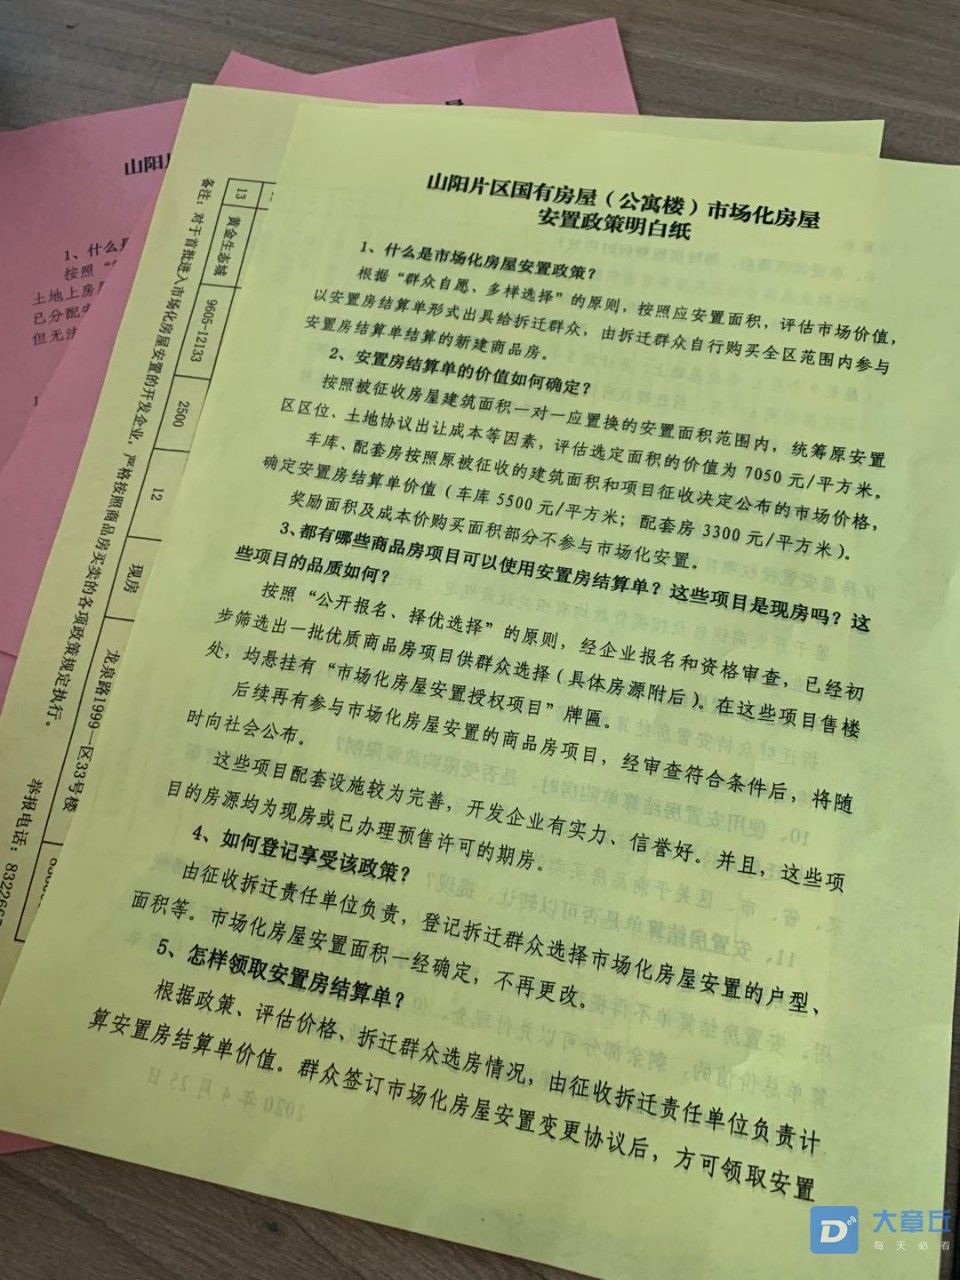 山阳片区国有房屋（公寓楼）市场化房屋
安置政策明白纸
1、什么是市场化房屋安置政策？
根据“群众自愿、多样选择”的原则，按照应安置面积，评估市场价值，
以安置房结算单形式出具给拆迁群众，由拆迁群众自行购买全区范围内参与
安置房结算单结算的新建商品房。
2、安置房结算单的价值如何确定？
按照被征收房屋建筑面积一对一应置换的安置面积范围内，统筹原安置
区区位、土地协议出让成本等因素，评估选定面积的价值为 7050 元/平方米。
车库、配套房按照原被征收的建筑面积和项目征收决定公布的市场价格，
确定安置房结算单价值（车库 5500 元/平方米；配套房 3300 元/平方米）。
奖励面积及成本价购买面积部分不参与市场化安置。
3、都有哪些商品房项目可以使用安置房结算单？这些项目是现房吗？这
些项目的品质如何？
按照“公开报名、择优选择”的原则，经企业报名和资格审查，已经初
步筛选出一批优质商品房项目供群众选择（具体房源附后）。在这些项目售楼
处，均悬挂有“市场化房屋安置授权项目”牌匾。
后续再有参与市场化房屋安置的商品房项目，经审查符合条件后，将随
时向社会公布。
这些项目配套设施较为完善，开发企业有实力、信誉好。并且，这些项
目的房源均为现房或已办理预售许可的期房。
4、如何登记享受该政策？
由征收拆迁责任单位负责，登记拆迁群众选择市场化房屋安置的户型、
面积等。市场化房屋安置面积一经确定，不再更改。
5、怎样领取安置房结算单？
根据政策、评估价格、拆迁群众选房情况，由征收拆迁责任单位负责计
算安置房结算单价值。群众签订市场化房屋安置变更协议后，方可领取安置
13 黄金生态城 9605-12133 2500 12 现房 龙泉路1999一区33号楼
备注：对于首批进入市场化房屋安置的开发企业，严格按照商品房买卖的各项政策规定执行。
举报电话：832266
山阳片
1、什么是
按照“
土地上房屋
已分配
但无
10、使用安置房结算单购房时，是否受限购政策限制？
11、安置房结算单是否可以转让、提现？
2020年4月25日
大章丘
每天必看